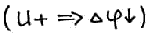 (U+ ⇒ Δφ↓)